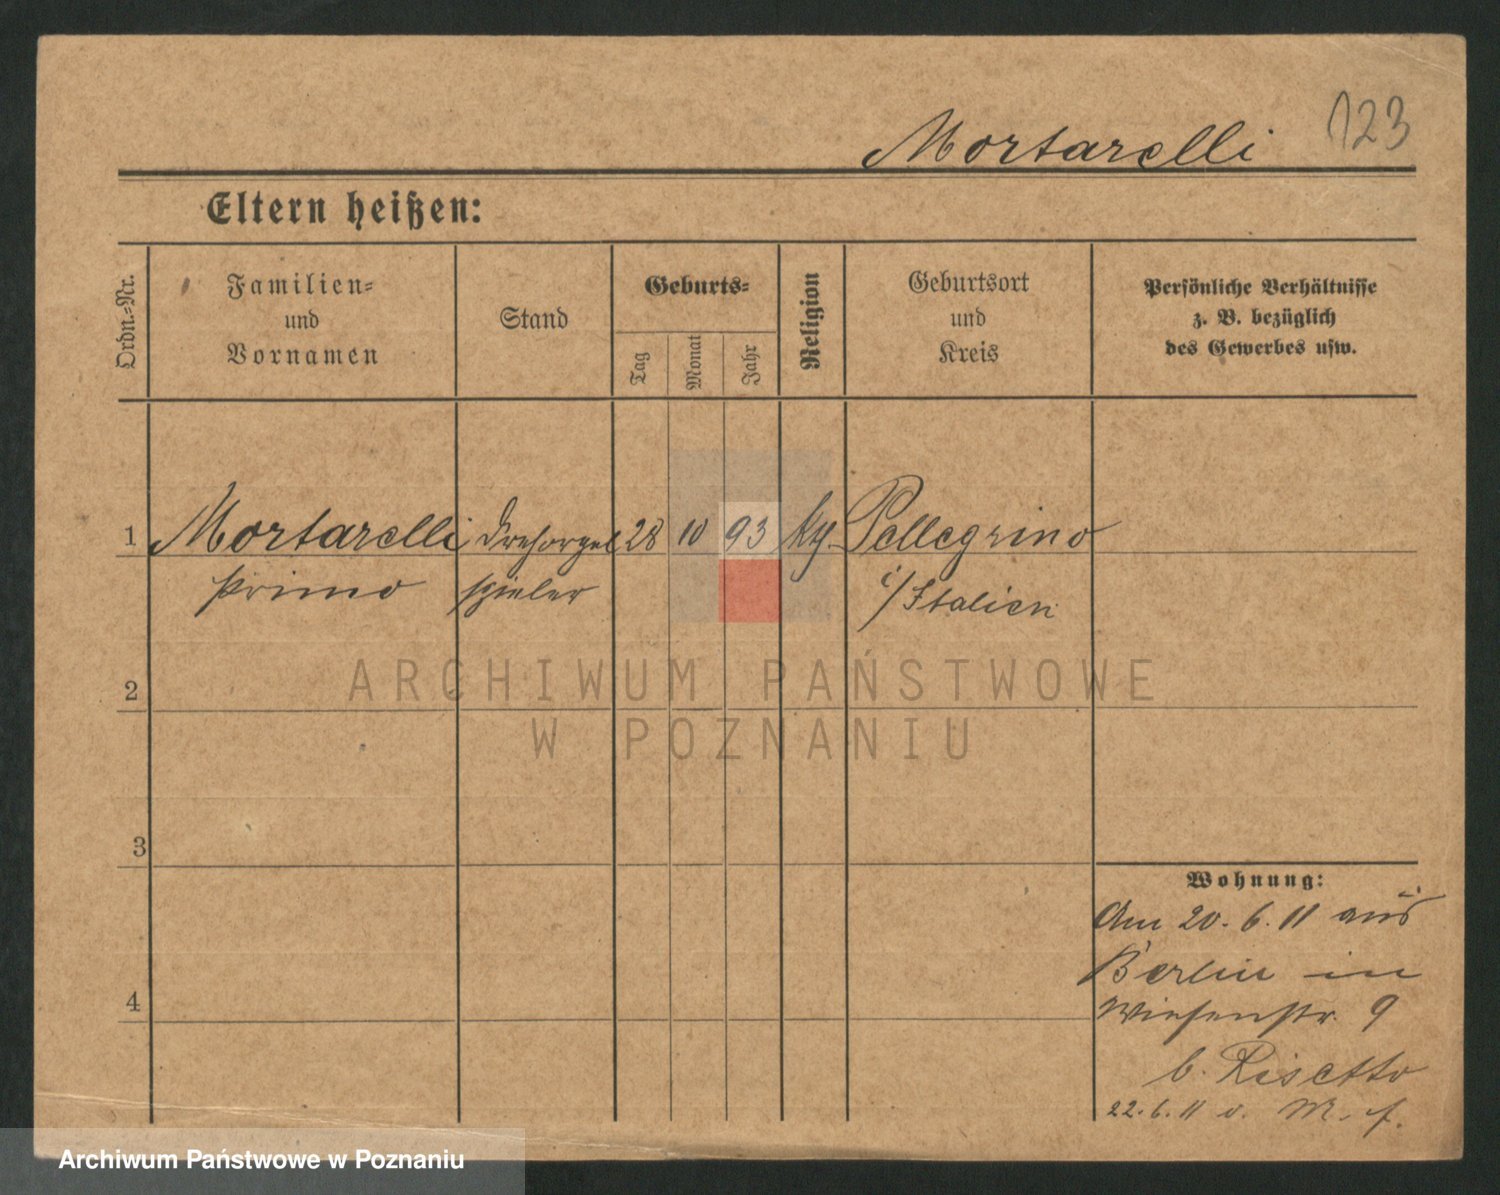 Mortarelli 123
Eltern heißen:
Ordn.-Nr.
Familien-
und
Vornamen
Stand
Geburts-
Tag
Monat
Jahr
Religion
Geburtsort
und
Kreis
Persönliche Verhältnisse
z. B. bezüglich
des Gewerbes usw.
1 Mortarelli Drehorgel 28 10 93 kth. Pellegrino
Primo spieler i/Italien
ARCHIWUM PAŃSTWOWE
W POZNANIU
2
3
4
Wohnung:
Am 20.6.11 aus
Berlin in
Wiesenstr. 9
b. Risetto
22.6.11 v. M. f.
Archiwum Państwowe w Poznaniu